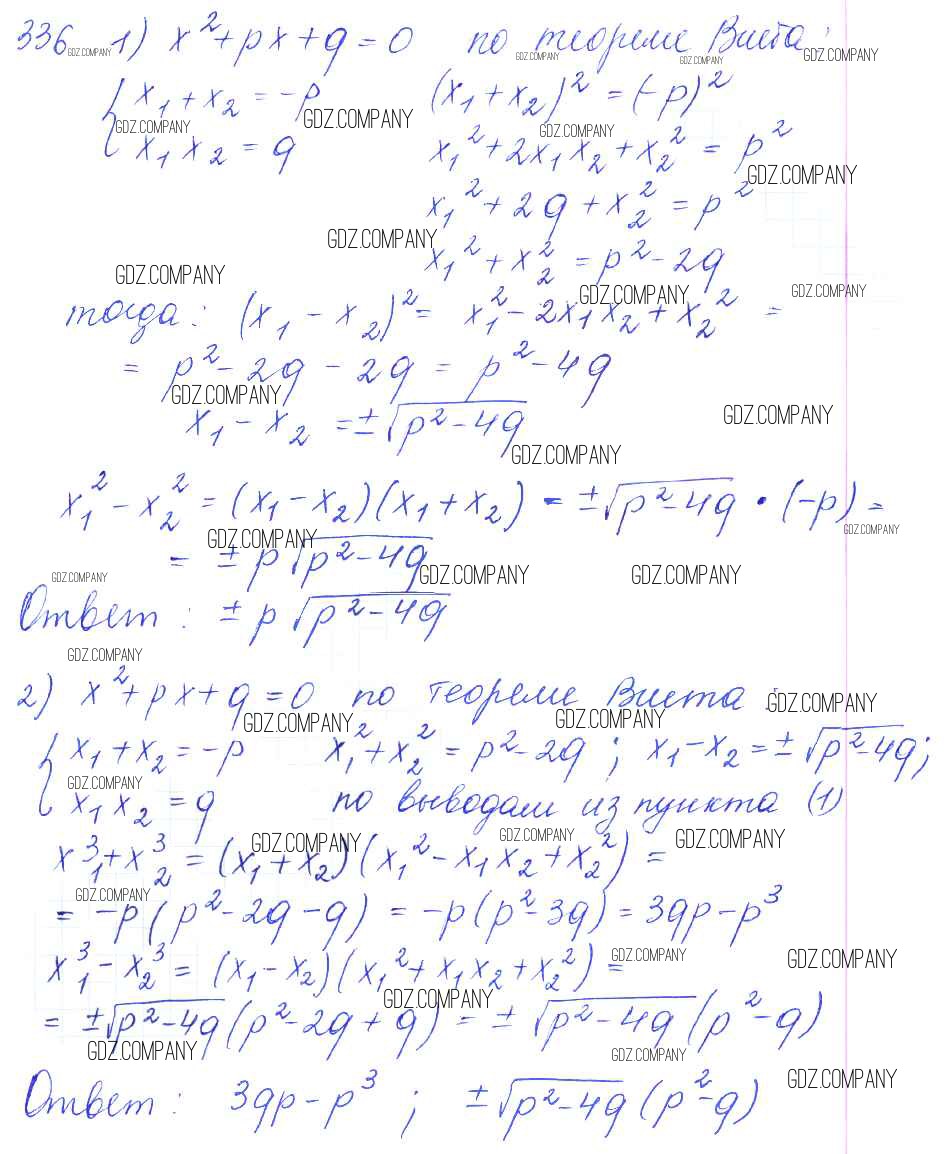 336 1) x² + px + q = 0 по теореме Виета:
{ x₁ + x₂ = -p (x₁ + x₂)² = (-p)²
x₁ x₂ = q x₁² + 2x₁x₂ + x₂² = p²
x₁² + 2q + x₂² = p²
x₁² + x₂² = p² - 2q
тогда: (x₁ - x₂)² = x₁² - 2x₁x₂ + x₂² =
= p² - 2q - 2q = p² - 4q
x₁ - x₂ = ±√(p² - 4q)
x₁² - x₂² = (x₁ - x₂)(x₁ + x₂) = ±√(p² - 4q) · (-p) =
= ± p √(p² - 4q)
Ответ: ± p √(p² - 4q)
2) x² + px + q = 0 по теореме Виета:
{ x₁ + x₂ = -p x₁² + x₂² = p² - 2q ; x₁ - x₂ = ± √(p² - 4q);
x₁ x₂ = q по выводам из пункта (1)
x₁³ + x₂³ = (x₁ + x₂)(x₁² - x₁x₂ + x₂²) =
= -p (p² - 2q - q) = -p(p² - 3q) = 3qp - p³
x₁³ - x₂³ = (x₁ - x₂)(x₁² + x₁x₂ + x₂²) =
= ±√(p² - 4q) (p² - 2q + q) = ± √(p² - 4q) (p² - q)
Ответ: 3qp - p³ ; ±√(p² - 4q) (p² - q)
GDZ.COMPANY